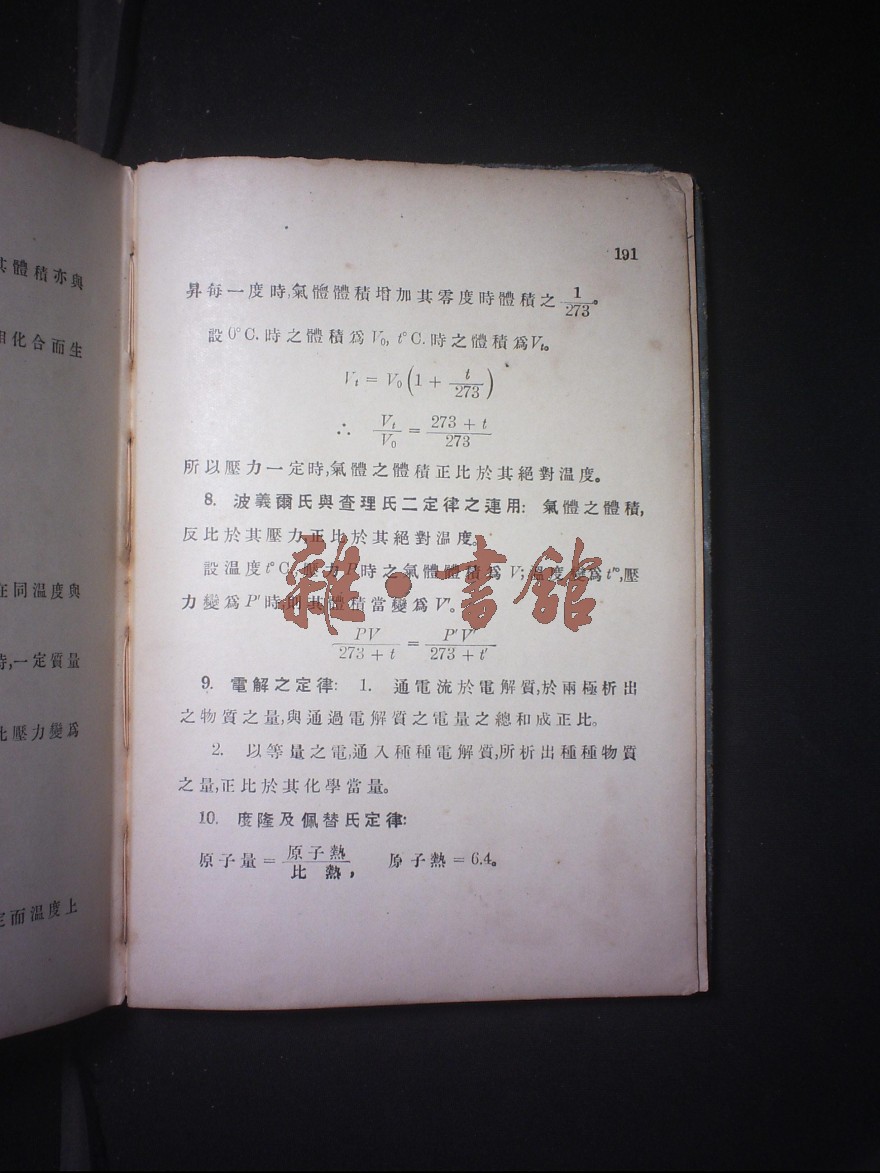 其體積亦與
相化合而生
在同溫度與
時,一定質量
比壓力變爲
定而溫度上
191
昇每一度時,氣體體積增加其零度時體積之 1/273。
設0° C.時之體積爲 V₀, t° C.時之體積爲Vₜ。
Vₜ = V₀(1 + t/273)
∴ Vₜ/V₀ = (273 + t)/273
所以壓力一定時,氣體之體積正比於其絕對溫度。
8. 波義爾氏與查理氏二定律之連用: 氣體之體積,
反比於其壓力,正比於其絕對溫度。
設溫度t° C.,壓力P時之氣體體積爲V;溫度變爲t'°,壓
力變爲P'時,則其體積當變爲V'。
PV/(273 + t) = P'V'/(273 + t')
9. 電解之定律: 1. 通電流於電解質,於兩極析出
之物質之量,與通過電解質之電量之總和成正比。
2. 以等量之電,通入種種電解質,所析出種種物質
之量,正比於其化學當量。
10. 度隆及佩替氏定律:
原子量 = 原子熱/比熱, 原子熱 = 6.4。
雜·書館